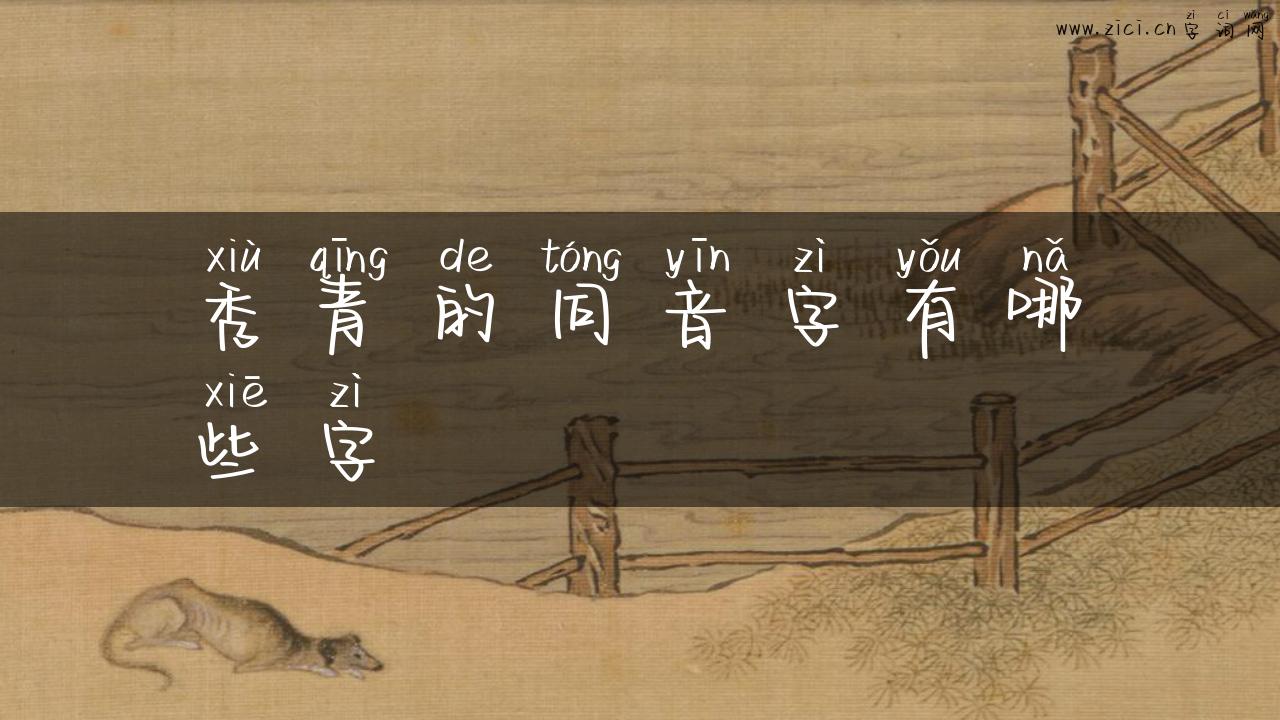 zì cí wǎng
www.zici.cn 字词网
xiù qīng de tóng yīn zì yǒu nǎ
秀青的同音字有哪
xiē zì
些字